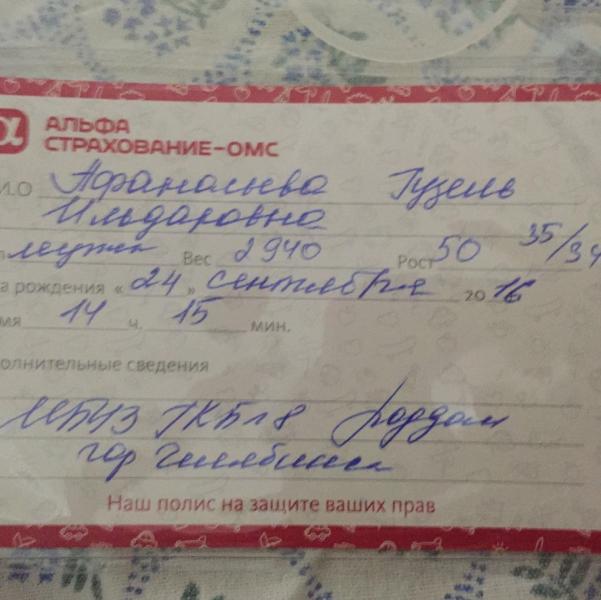 α АЛЬФА
СТРАХОВАНИЕ-ОМС
И.О Афанасьева Гузель
Ильдаровна
Вес 2940 Рост 50 35/34
а рождения «24» сентября 20 16
мя 14 ч. 15 мин.
олнительные сведения
МБУЗ ГКБ №8 роддом
гор Челябинск
Наш полис на защите ваших прав